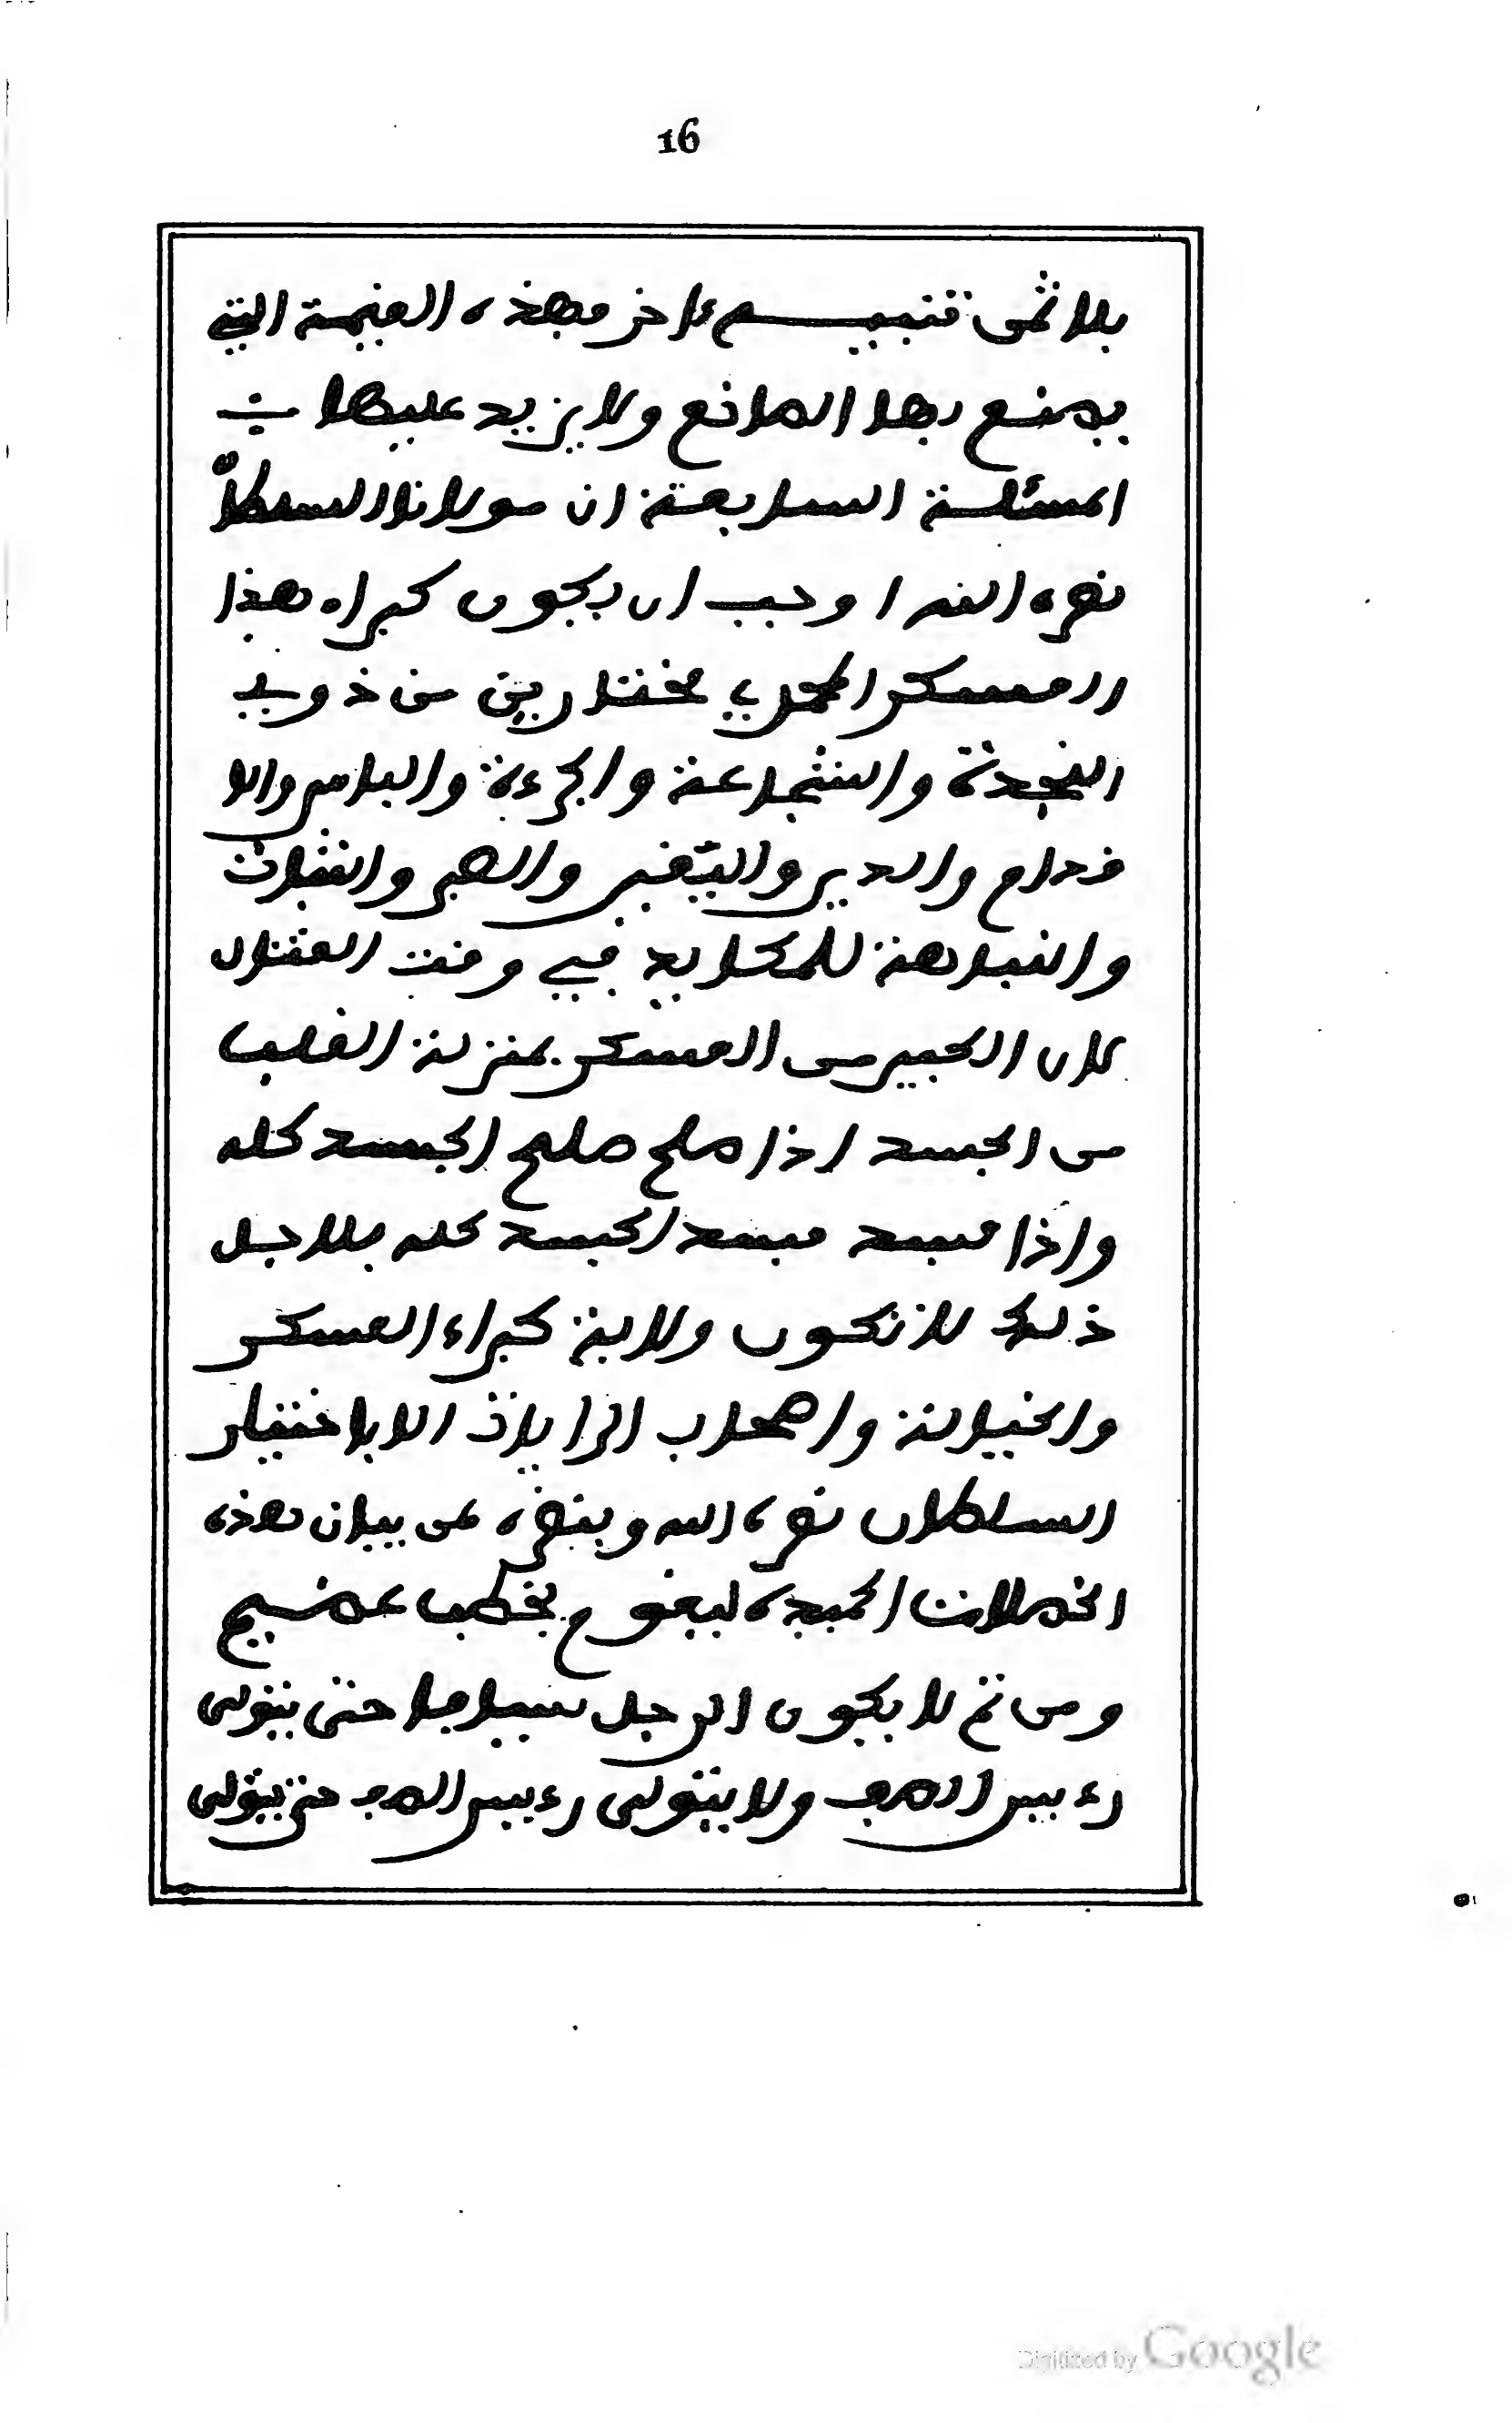 16
بلا ثمن تنبيـــه ءاخر وهذه القيمة التي
يمنع بها المانع ولا يزيد عليها
المسئلة السابعة ان مولانا السلطان
نصره الله اوجب ان يكون كبراء هذا
العسكر المحمدي مختارين من ذوي
النجدة والشجاعة والجرءة والباس والا
فدام والدين واليقين والصبر والثبات
والنباهة للمكايد في وقت القتال
لان الكبير من العسكر بمنزلة القلب
من الجسد اذا صلح صلح الجسد كله
واذا فسد فسد الجسد كله فلاجل
ذلك لا تكون ولاية كبراء العسكر
والخيالة واصحاب الرايات الا باختيار
السلطان نصره الله وبنظره لمن يبان هذه
الخصلات الحميدة ليقوم بخطب عظيم
ومن ثم لا يكون الرجل سيافا حتى يتولى
رءيس الصف ولا يتولى رءيس الصف حتى يتولى
Digitized by Google